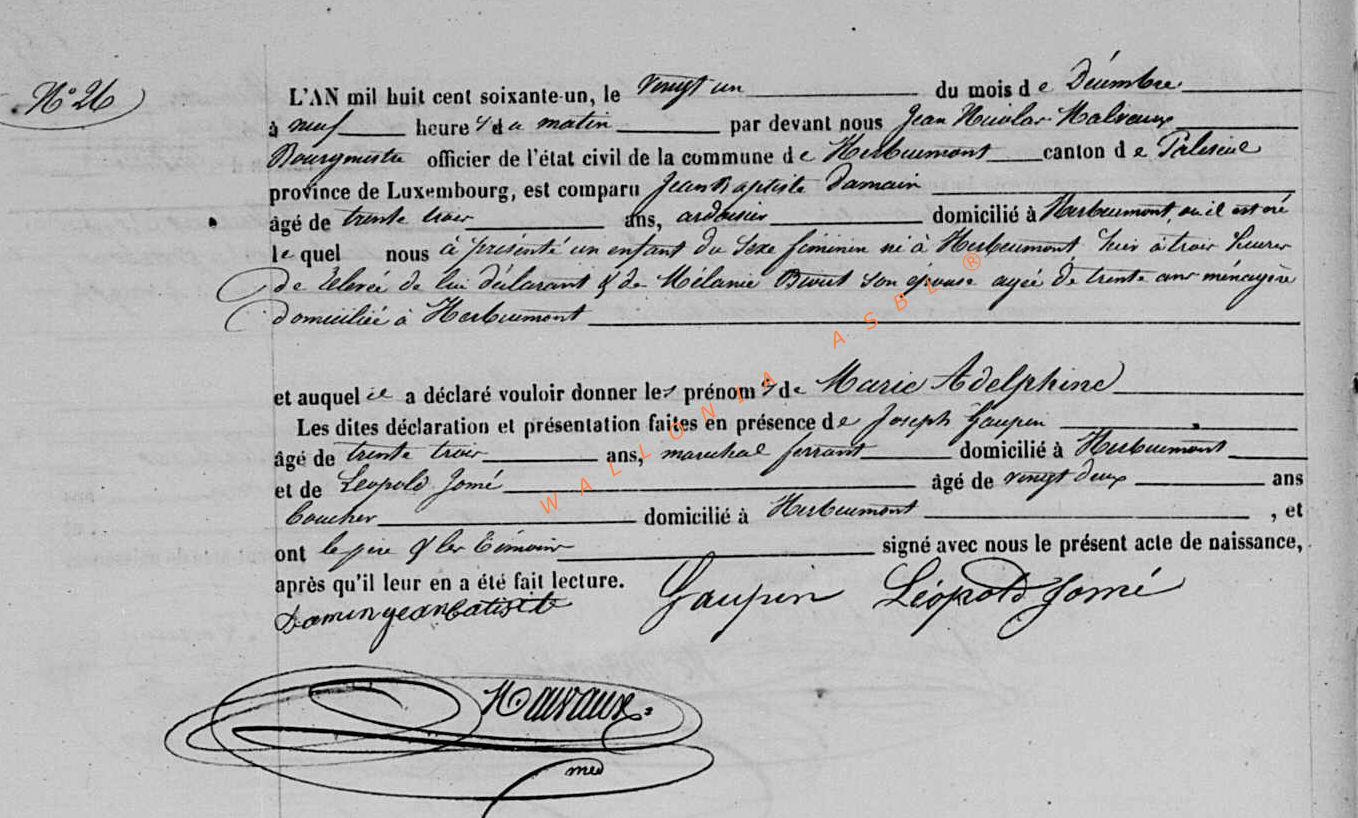 N° 26
L'AN mil huit cent soixante-un, le vingt un du mois de Décembre
à neuf heures du matin par devant nous Jean Nicolas Malvaux
Bourgmestre officier de l'état civil de la commune de Herbeumont canton de Paliseul
province de Luxembourg, est comparu Jean Baptiste Damain
âgé de trente trois ans, ardoisier domicilié à Herbeumont, où il est né
lequel nous a présenté un enfant du sexe feminin né à Herbeumont hier à trois heures
de relevée de lui déclarant & de Mélanie son épouse agée de trente ans ménagère
domiciliée à Herbeumont
et auquel il a déclaré vouloir donner les prénoms de Marie Adelphine
Les dites déclaration et présentation faites en présence de Joseph Gaupin
âgé de trente trois ans, marechal ferrant domicilié à Herbeumont
et de Léopold Jomé âgé de vingt deux ans
boucher domicilié à Herbeumont, et
ont le père & les témoins signé avec nous le présent acte de naissance,
après qu'il leur en a été fait lecture.
Damin jean batiste Gaupin Léopold Jomé
Malvaux
WALLONIA ASBL ®